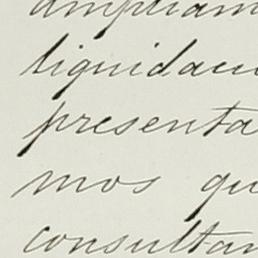 ampliam
liquidaci
presenta
mos qu
consultan